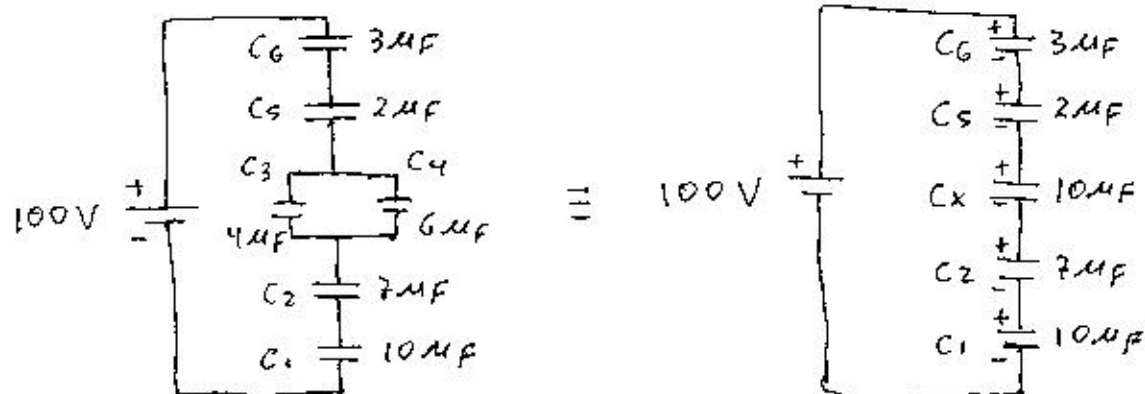 C6 3μF
C5 2μF
C3 C4
100V + -
4μF 6μF
C2 7μF
C1 10μF
≡
100V +
C6 + - 3μF
C5 + - 2μF
Cx + - 10μF
C2 + - 7μF
C1 + - 10μF